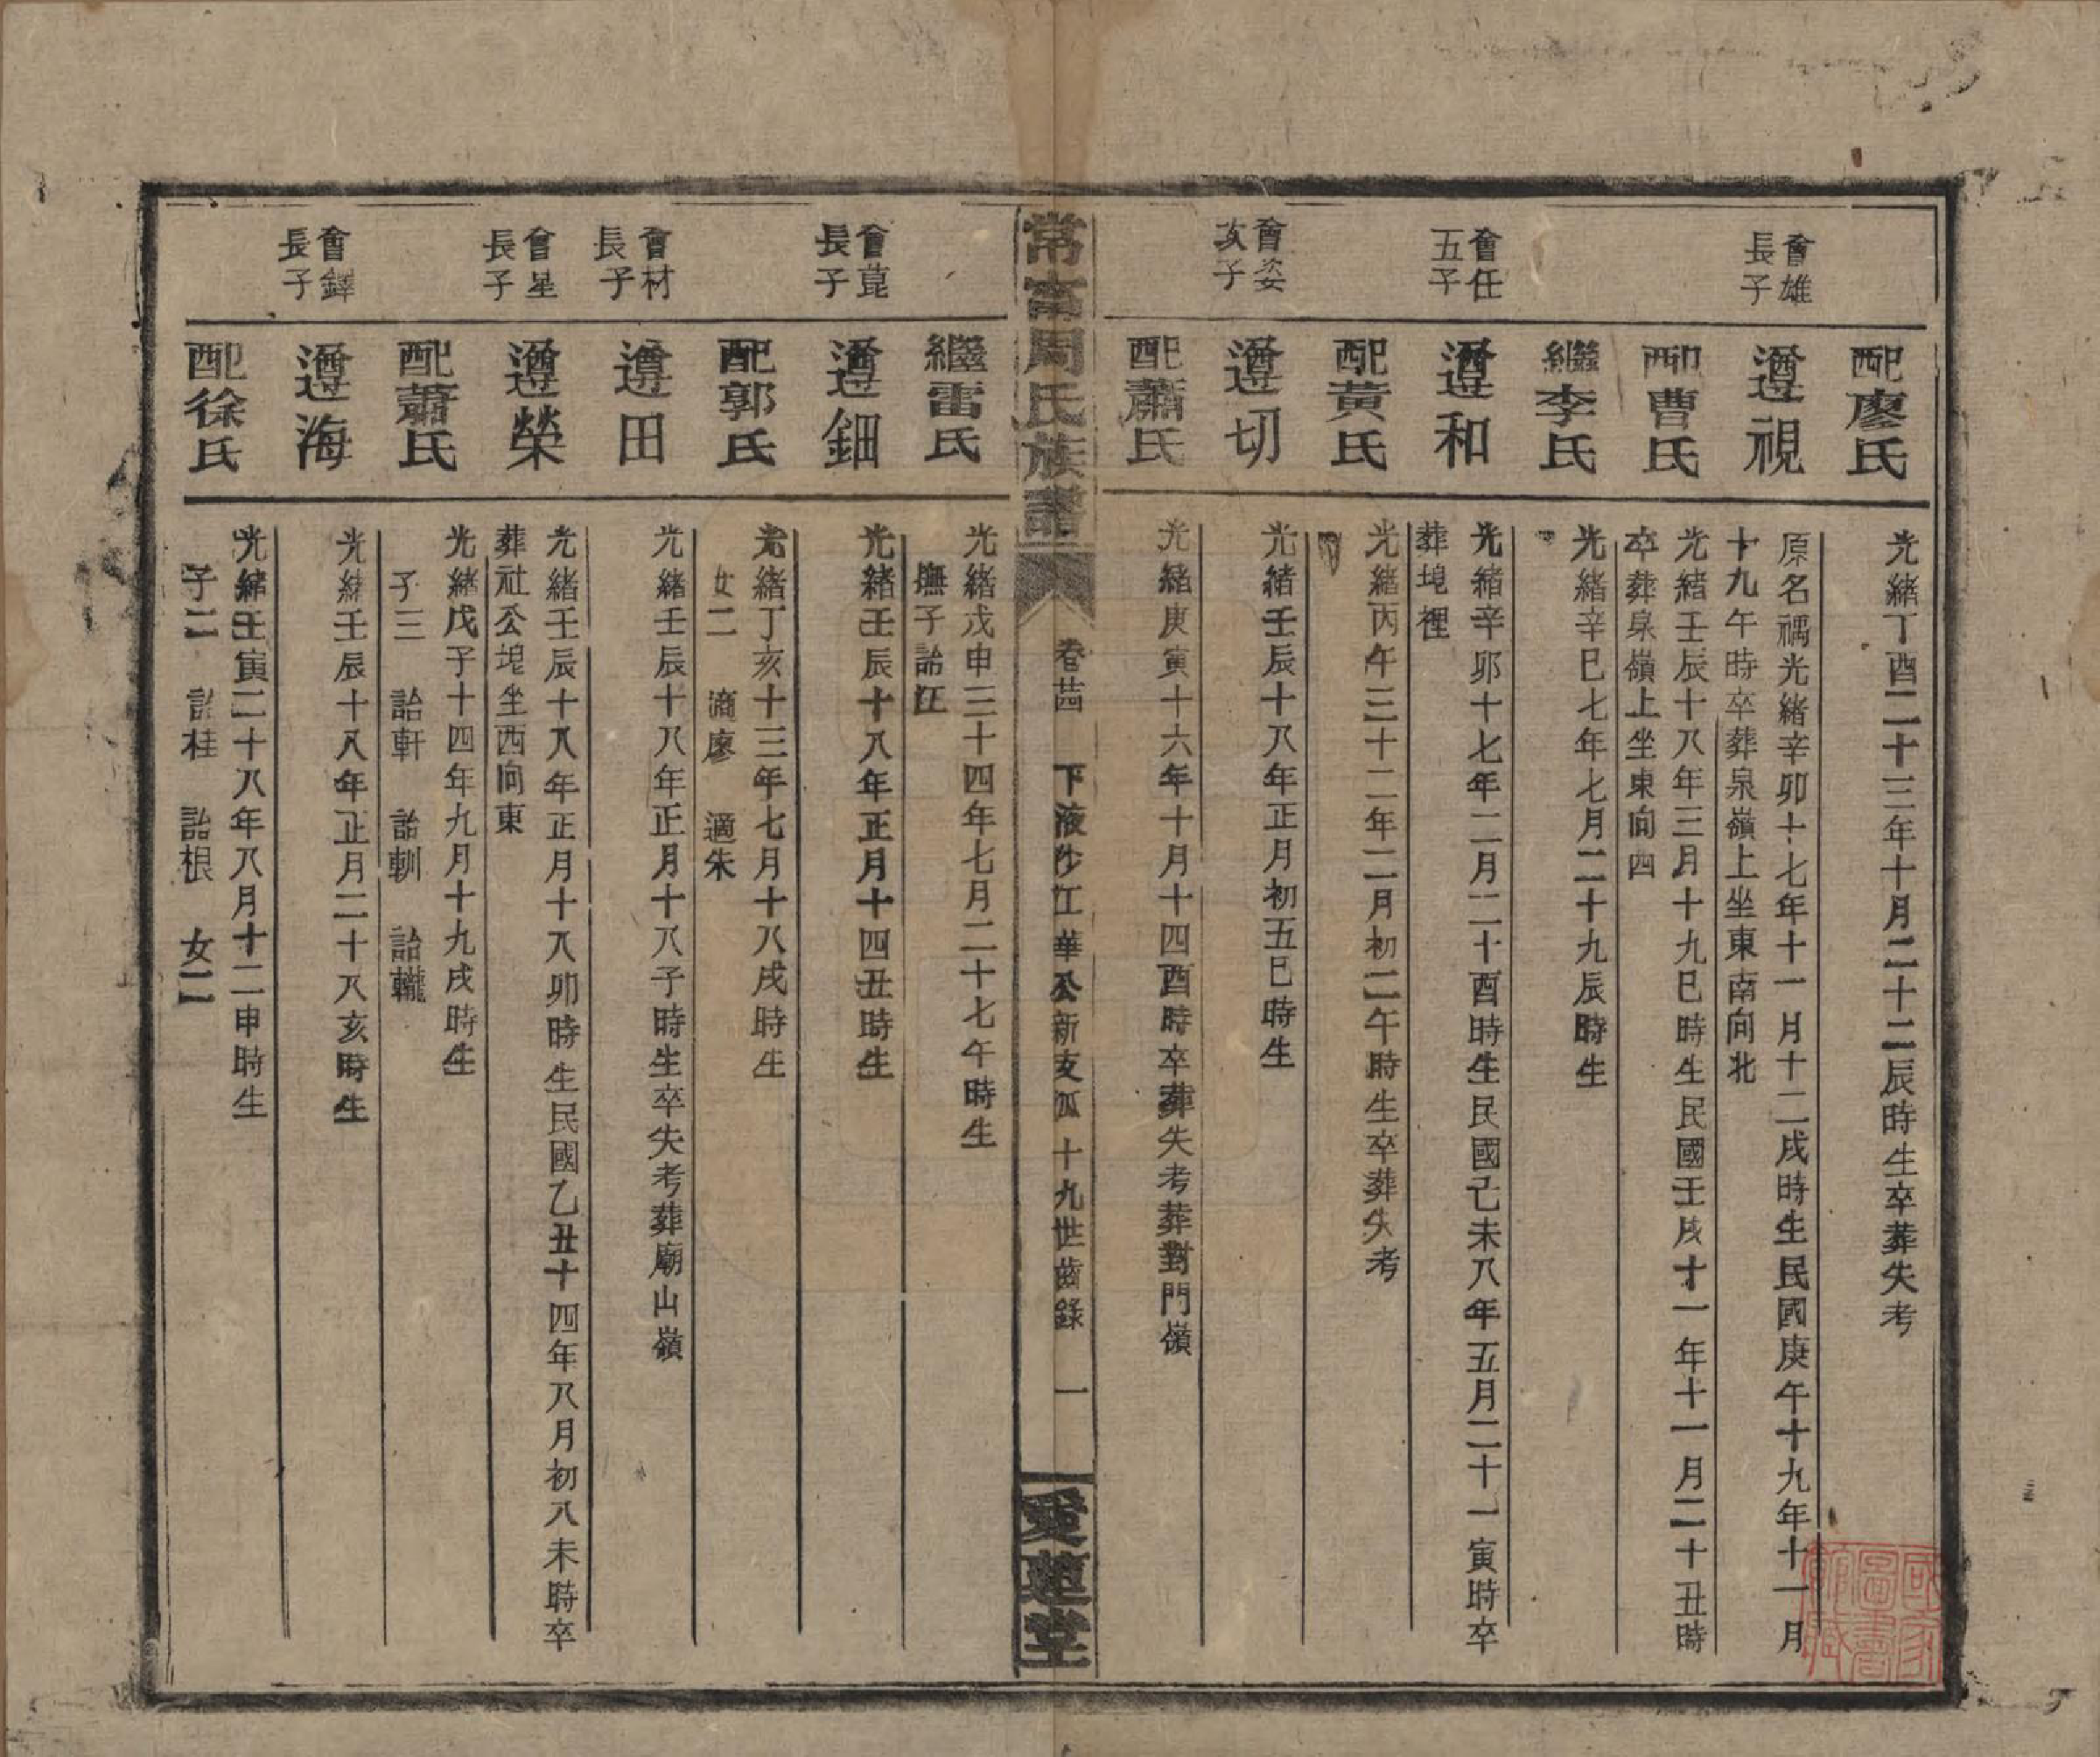 配廖氏
光緒丁酉二十三年十月二十二辰時生卒葬失考
會雄長子
遵視
原名禑光緒辛卯十七年十一月十二戌時生民國庚午十九年十一月
十九午時卒葬泉嶺上坐東南向北
配曹氏
光緒壬辰十八年三月十九巳時生民國壬戌十一年十一月二十丑時
卒葬泉嶺上坐東向西
繼李氏
光緒辛巳七年七月二十九辰時生
會任五子
遵和
光緒辛卯十七年二月二十酉時生民國己未八年五月二十一寅時卒
葬垉裡
配黃氏
光緒丙午三十二年二月初二午時生卒葬失考
會姿次子
遵切
光緒壬辰十八年正月初五巳時生
配蕭氏
光緒庚寅十六年十月十四酉時卒葬失考葬對門嶺
常富周氏族譜
卷廿四
下液沙江華公新支派十九世齒錄
一
愛蓮堂
繼雷氏
光緒戊申三十四年七月二十七午時生
撫子詒江
會菎長子
遵鈿
光緒壬辰十八年正月十四丑時生
配郭氏
光緒丁亥十三年七月十八戌時生
女二 適廖 適朱
會材長子
遵田
光緒壬辰十八年正月十八子時生卒失考葬廟山嶺
會星長子
遵榮
光緒壬辰十八年正月十八卯時生民國乙丑十四年八月初八未時卒
葬社公垉坐西向東
配蕭氏
光緒戊子十四年九月十九戌時生
子三 詒軒 詒軻 詒轆
會鐸長子
遵海
光緒壬辰十八年正月二十八亥時生
配徐氏
光緒壬寅二十八年八月十二申時生
子二 詒桂 詒根 女二
國家圖書館藏